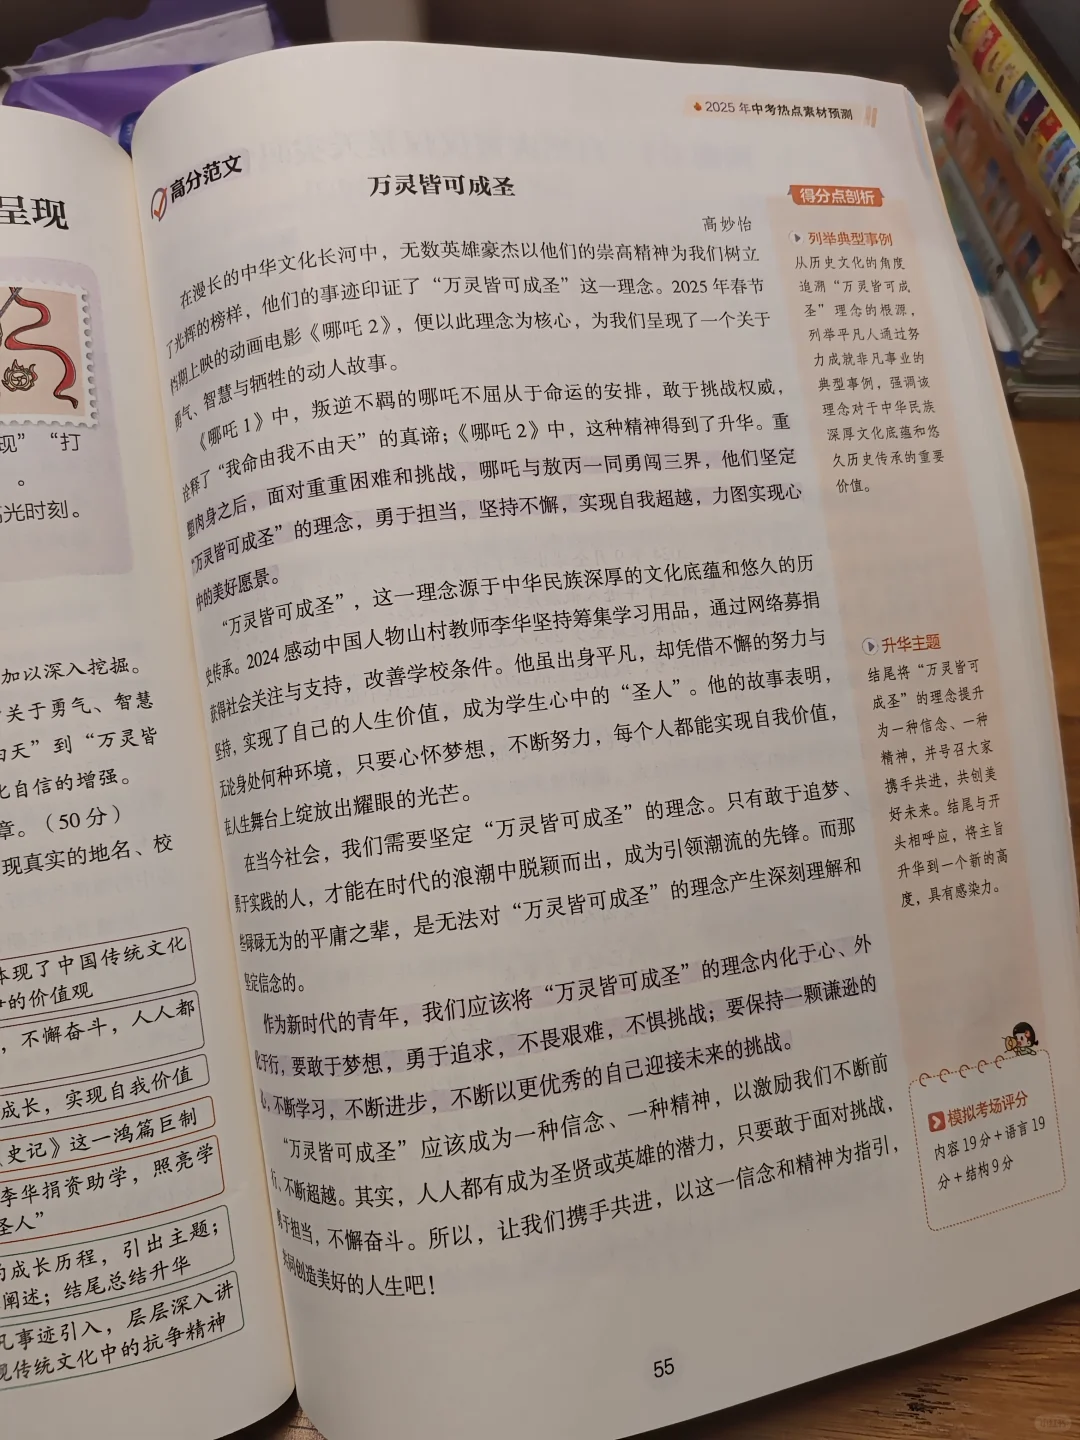 呈现
现”“打
。
高光时刻。
加以深入挖掘。
关于勇气、智慧
由天”到“万灵皆
化自信的增强。
章。（50分）
现真实的地名、校
体现了中国传统文化
的价值观
，不懈奋斗，人人都
成长，实现自我价值
史记》这一鸿篇巨制
李华捐资助学，照亮学
圣人”
成长历程，引出主题；
阐述；结尾总结升华
凡事迹引入，层层深入讲
现传统文化中的抗争精神
2025年中考热点素材预测
高分范文
万灵皆可成圣
高妙怡
在漫长的中华文化长河中，无数英雄豪杰以他们的崇高精神为我们树立
了光辉的榜样，他们的事迹印证了“万灵皆可成圣”这一理念。2025年春节
档期上映的动画电影《哪吒2》，便以此理念为核心，为我们呈现了一个关于
勇气、智慧与牺牲的动人故事。
《哪吒1》中，叛逆不羁的哪吒不屈从于命运的安排，敢于挑战权威，
诠释了“我命由我不由天”的真谛；《哪吒2》中，这种精神得到了升华。重
塑肉身之后，面对重重困难和挑战，哪吒与敖丙一同勇闯三界，他们坚定
“万灵皆可成圣”的理念，勇于担当，坚持不懈，实现自我超越，力图实现心
中的美好愿景。
“万灵皆可成圣”，这一理念源于中华民族深厚的文化底蕴和悠久的历
史传承。2024感动中国人物山村教师李华坚持筹集学习用品，通过网络募捐
获得社会关注与支持，改善学校条件。他虽出身平凡，却凭借不懈的努力与
坚持，实现了自己的人生价值，成为学生心中的“圣人”。他的故事表明，
无论身处何种环境，只要心怀梦想，不断努力，每个人都能实现自我价值，
在人生舞台上绽放出耀眼的光芒。
在当今社会，我们需要坚定“万灵皆可成圣”的理念。只有敢于追梦、
勇于实践的人，才能在时代的浪潮中脱颖而出，成为引领潮流的先锋。而那
些碌碌无为的平庸之辈，是无法对“万灵皆可成圣”的理念产生深刻理解和
坚定信念的。
作为新时代的青年，我们应该将“万灵皆可成圣”的理念内化于心、外
化于行，要敢于梦想，勇于追求，不畏艰难，不惧挑战；要保持一颗谦逊的
心，不断学习，不断进步，不断以更优秀的自己迎接未来的挑战。
“万灵皆可成圣”应该成为一种信念、一种精神，以激励我们不断前
行、不断超越。其实，人人都有成为圣贤或英雄的潜力，只要敢于面对挑战，
勇于担当，不懈奋斗。所以，让我们携手共进，以这一信念和精神为指引，
共同创造美好的人生吧！
得分点剖析
列举典型事例
从历史文化的角度
追溯“万灵皆可成
圣”理念的根源，
列举平凡人通过努
力成就非凡事业的
典型事例，强调该
理念对于中华民族
深厚文化底蕴和悠
久历史传承的重要
价值。
升华主题
结尾将“万灵皆可
成圣”的理念提升
为一种信念、一种
精神，并号召大家
携手共进，共创美
好未来。结尾与开
头相呼应，将主旨
升华到一个新的高
度，具有感染力。
模拟考场评分
内容19分+语言19
分+结构9分
55